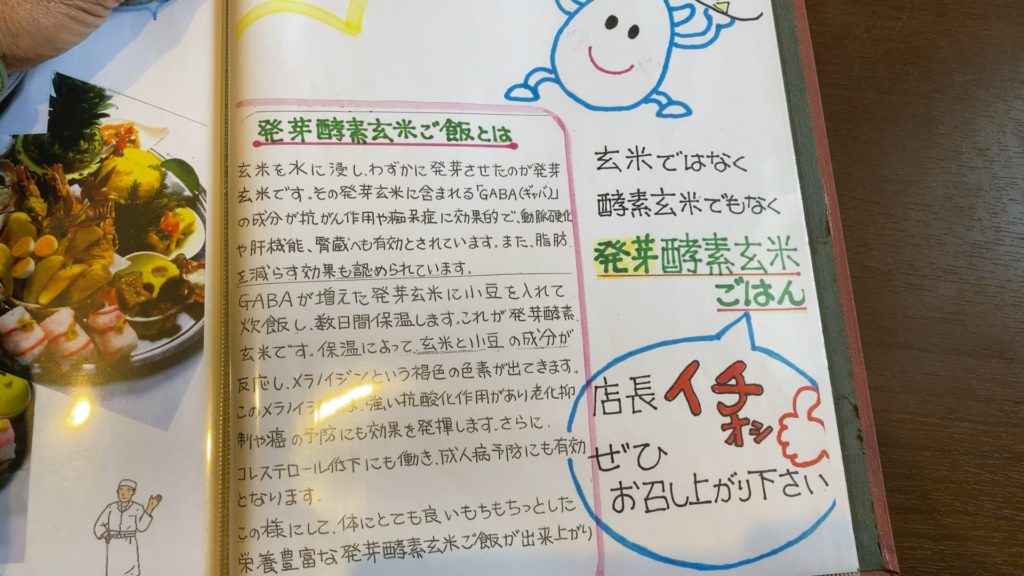 発芽酵素玄米ご飯とは
玄米を水に浸し、わずかに発芽させたのが発芽
玄米です。その発芽玄米に含まれる「GABA(ギャバ)」
の成分が抗がん作用や痴呆症に効果的で、動脈硬化
や肝機能、腎蔵へも有効とされています。また、脂肪
を減らす効果も認められています。
GABAが増えた発芽玄米に小豆を入れて
炊飯し、数日間保温します。これが発芽酵素
玄米です。保温によって、玄米と小豆の成分が
反応し、メラノイジンという褐色の色素が出てきます。
このメラノイジンは、強い抗酸化作用があり老化抑
制や癌の予防にも効果を発揮します。さらに、
コレステロール低下にも働き、成人病予防にも有効
となります。
この様にして、体にとても良いもちもちっとした
栄養豊富な発芽酵素玄米ご飯が出来上がり
玄米ではなく
酵素玄米でもなく
発芽酵素玄米
ごはん
店長イチオシ
ぜひ
お召し上がり下さい